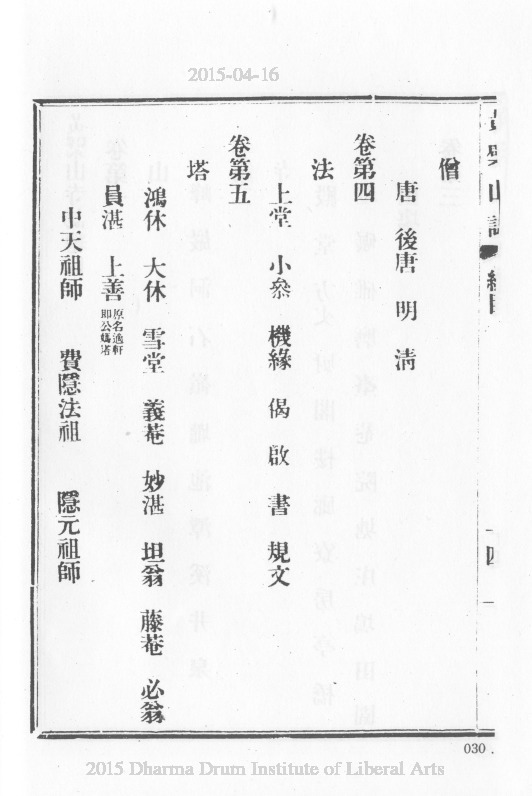 2015-04-16
僧
唐 後唐 明 清
卷第四
法
上堂 小叅 機緣 偈 啟 書 規文
卷第五
塔
鴻休 大休 雪堂 義菴 妙湛 坦翁 藤菴 必翁
員湛 上善 原名逸軒 即公媽塔
中天祖師 費隱法祖 隱元祖師
山 四
030
2015 Dharma Drum Institute of Liberal Arts